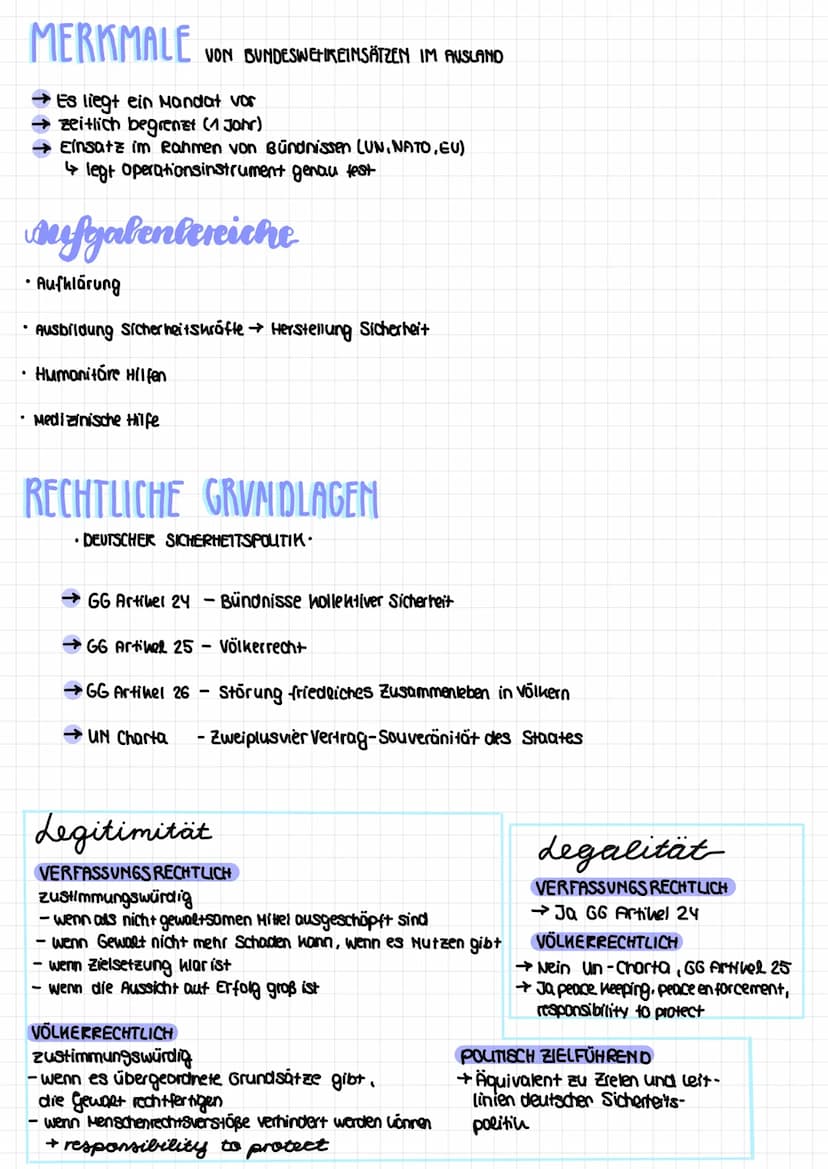 MERKMALE VON BUNDESWEHREINSÄTZEN IM AUSLAND
→ Es liegt ein Mandat vor
→ zeitlich begrenzt (1 Jahr)
→ Einsatz im Rahmen von Bündnissen (UN, NATO, EU)
↳ legt Operationsinstrument genau fest
Aufgabenbereiche
· Aufklärung
· Ausbildung Sicherheitskräfte → Herstellung Sicherheit
· Humanitäre Hilfen
· Medizinische Hilfe
RECHTLICHE GRUNDLAGEN
· DEUTSCHER SICHERHEITSPOLITIK ·
→ GG Artikel 24 – Bündnisse kollektiver Sicherheit
→ GG Artikel 25 – Völkerrecht
→ GG Artikel 26 – Störung friedliches Zusammenleben in Völkern
→ UN Charta - Zweiplusvier Vertrag - Souveränität des Staates
Legitimität
VERFASSUNGSRECHTLICH
zustimmungswürdig
- wenn als nicht gewaltsamen Mittel ausgeschöpft sind
- wenn Gewalt nicht mehr Schaden kann, wenn es Nutzen gibt
- wenn Zielsetzung klar ist
- wenn die Aussicht auf Erfolg groß ist
VÖLKERRECHTLICH
zustimmungswürdig
- wenn es übergeordnete Grundsätze gibt,
die Gewalt rechtfertigen
- wenn Menschenrechtsverstöße verhindert werden können
→ responsibility to protect
Legalität
VERFASSUNGSRECHTLICH
→ Ja GG Artikel 24
VÖLKERRECHTLICH
→ Nein Un-Charta, GG Artikel 25
→ Ja peace keeping, peace enforcement,
responsibility to protect
POLITISCH ZIELFÜHREND
→ Äquivalent zu Zielen und Leit-
linien deutscher Sicherheits-
politik